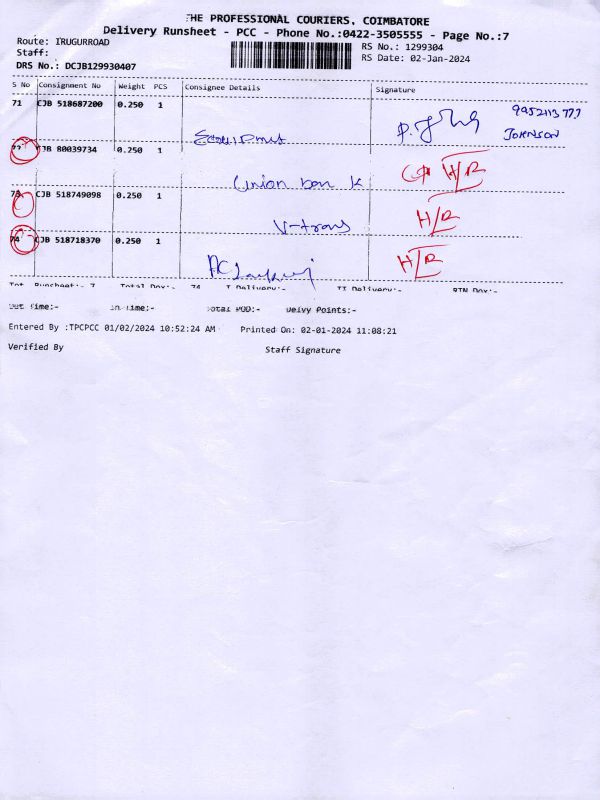 THE PROFESSIONAL COURIERS, COIMBATORE
Delivery Runsheet - PCC - Phone No.:0422-3505555 - Page No.:7
Route: IRUGURROAD
RS No.: 1299304
Staff:
RS Date: 02-Jan-2024
DRS No.: DCJB129930407
S No Consignment No Weight PCS Consignee Details Signature
71 CJB 518687200 0.250 1
9952113777
JOHNSON
72 CJB 80039734 0.250 1
Union bank H/R
73 CJB 518749098 0.250 1
V-trans H/R
74 CJB 518718370 0.250 1
H/R
Tot. Runsheet:- 7 Total Dox:- 74 T Delivery:- TT Delivery:- RTN Dox:-
Out Time:- In Time:- Total POD:- Delvy Points:-
Entered By :TPCPCC 01/02/2024 10:52:24 AM Printed On: 02-01-2024 11:08:21
Verified By Staff Signature